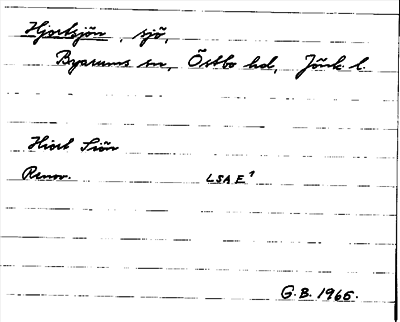 Hjortsjön, sjö,
Byarums sn, Östbo hd, Jönk. l.
Hiort Siön
Renov. LSA E¹
G.B. 1965.